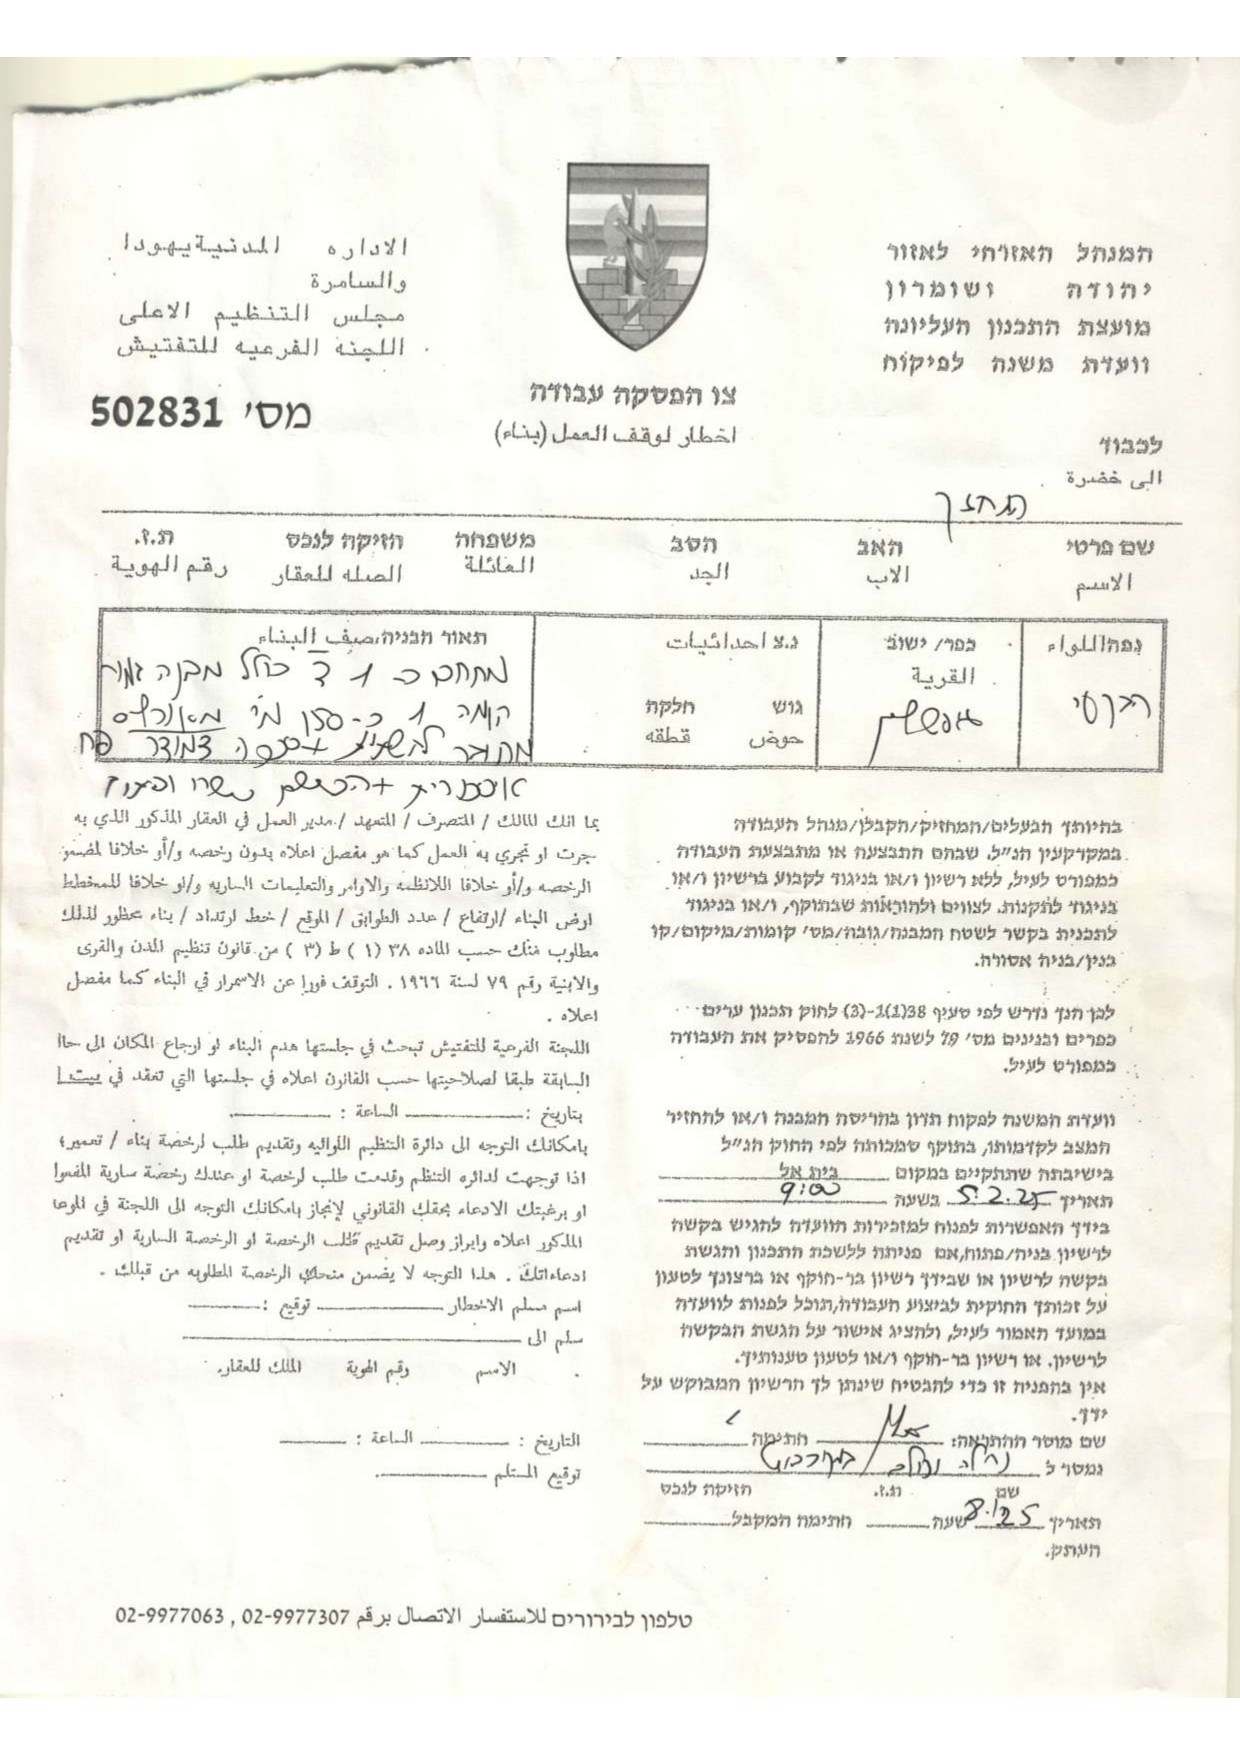 המנהל האזרחי לאזור
יהודה ושומרון
מועצת התכנון העליונה
וועדת משנה לפיקוח
الاداره المدنية يهودا
والسامرة
مجلس التنظيم الاعلى
اللجنه الفرعيه للتفتيش
מס׳ 502831
צו הפסקה עבודה
اخطار لوقف العمل (بناء)
לכבוד
الى خضرة
המחזיק
שם פרטי האב הסב משפחה חזיקה לנכס ת.ז.
الاسم الاب الجد العائلة الصله للعقار رقم الهوية
נפה\اللواء
כפר/ ישוב
القرية
נ.צ احداثيات
גוש חלקה
حوض قطقه
תאור הבניה،صيف البناء
קומה 1
בהיותך הבעלים/המחזיק/הקבלן/מנהל העבודה
במקרקעין הנ״ל, שבהם התבצעה או מתבצעת העבודה
כמפורט לעיל, ללא רשיון ו/או בניגוד לקבוע ברשיון ו/או
בניגוד לתקנות, לצווים ולהוראות שבתוקף, ו/או בניגוד
לתכנית בקשר לשטח המבנה/גובה/מס׳ קומות/מיקום/קו
בנין/בניה אסורה.
לכן הנך נדרש לפי סעיף 38(1)1-(3) לחוק תכנון ערים
כפרים ובנינים מס׳ 79 לשנת 1966 להפסיק את העבודה
כמפורט לעיל.
וועדת המשנה לפקוח תדון בהריסה המבנה ו/או להחזיר
המצב לקדמותו, בתוקף סמכותה לפי החוק הנ״ל
בישיבתה שתתקיים במקום בית אל
תאריך 5.2.25 בשעה 9:00
בידך האפשרות לפנות למזכירות הוועדה להגיש בקשה
לרשיון בניה/פתוח,אם פניתה ללשכת התכנון והגשת
בקשה לרשיון או שבידך רשיון בר-תוקף או ברצונך לטעון
על זכותך החוקית לביצוע העבודה,תוכל לפנות לוועדה
במועד האמור לעיל, ולהציג אישור על הגשת הבקשה
לרשיון. או רשיון בר-תוקף ו/או לטעון טענותיך.
אין בהפניה זו כדי להבטיח שינתן לך הרשיון המבוקש על
ידך.
שם מוסר ההתראה: חתימה
נמסר ל
שם ת.ז. חזיקה לנכס
תאריך 8.1.25 שעה חתימה המקבל
העתק.
بما انك المالك / المتصرف / المتعهد / مدير العمل في العقار المذكور الذي به
جرت او تجري به العمل كما هو مفصل اعلاه بدون رخصه و/أو خلافا لمضمو
الرخصه و/أو خلافا اللانظمه والاوامر والتعليمات الساريه و/او خلافا للمخطط
ارض البناء /ارتفاع / عدد الطوابق / الموقع / خط ارتداد / بناء محظور لذلك
مطلوب منك حسب الماده ٣٨ (١) ط (٣) من قانون تنظيم المدن والقرى
والابنية رقم ٧٩ لسنة ١٩٦٦ . التوقف فورا عن الاسمرار في البناء كما مفصل
اعلاه .
اللجنة الفرعية للتفتيش تبحث في جلستها هدم البناء او ارجاع المكان الى حاا
السابقة طبقا لصلاحيتها حسب القانون اعلاه في جلستها التي تعقد في بيت ا
بتاريخ : الساعة :
بامكانك التوجه الى دائرة التنظيم اللوائيه وتقديم طلب لرخصة بناء / تعمير؛
اذا توجهت لدائره التنظم وقدمت طلب لرخصة او عندك رخصة سارية المفعوا
او برغبتك الادعاء بحقك القانوني لإنجاز بامكانك التوجه الى اللجنة في الموعا
المذكور اعلاه وايراز وصل تقديم طلب الرخصة او الرخصة السارية او تقديم
ادعاءاتك . هذا التوجه لا يضمن منحك الرخصة المطلوبه من قبلك .
اسم مسلم الاخطار توقيع :
سلم الى
الاسم رقم الهوية الملك للعقار.
التاريخ : الساعة :
توقيع المستلم
טלפון לבירורים للاستفسار الاتصال برقم 02-9977307 , 02-9977063